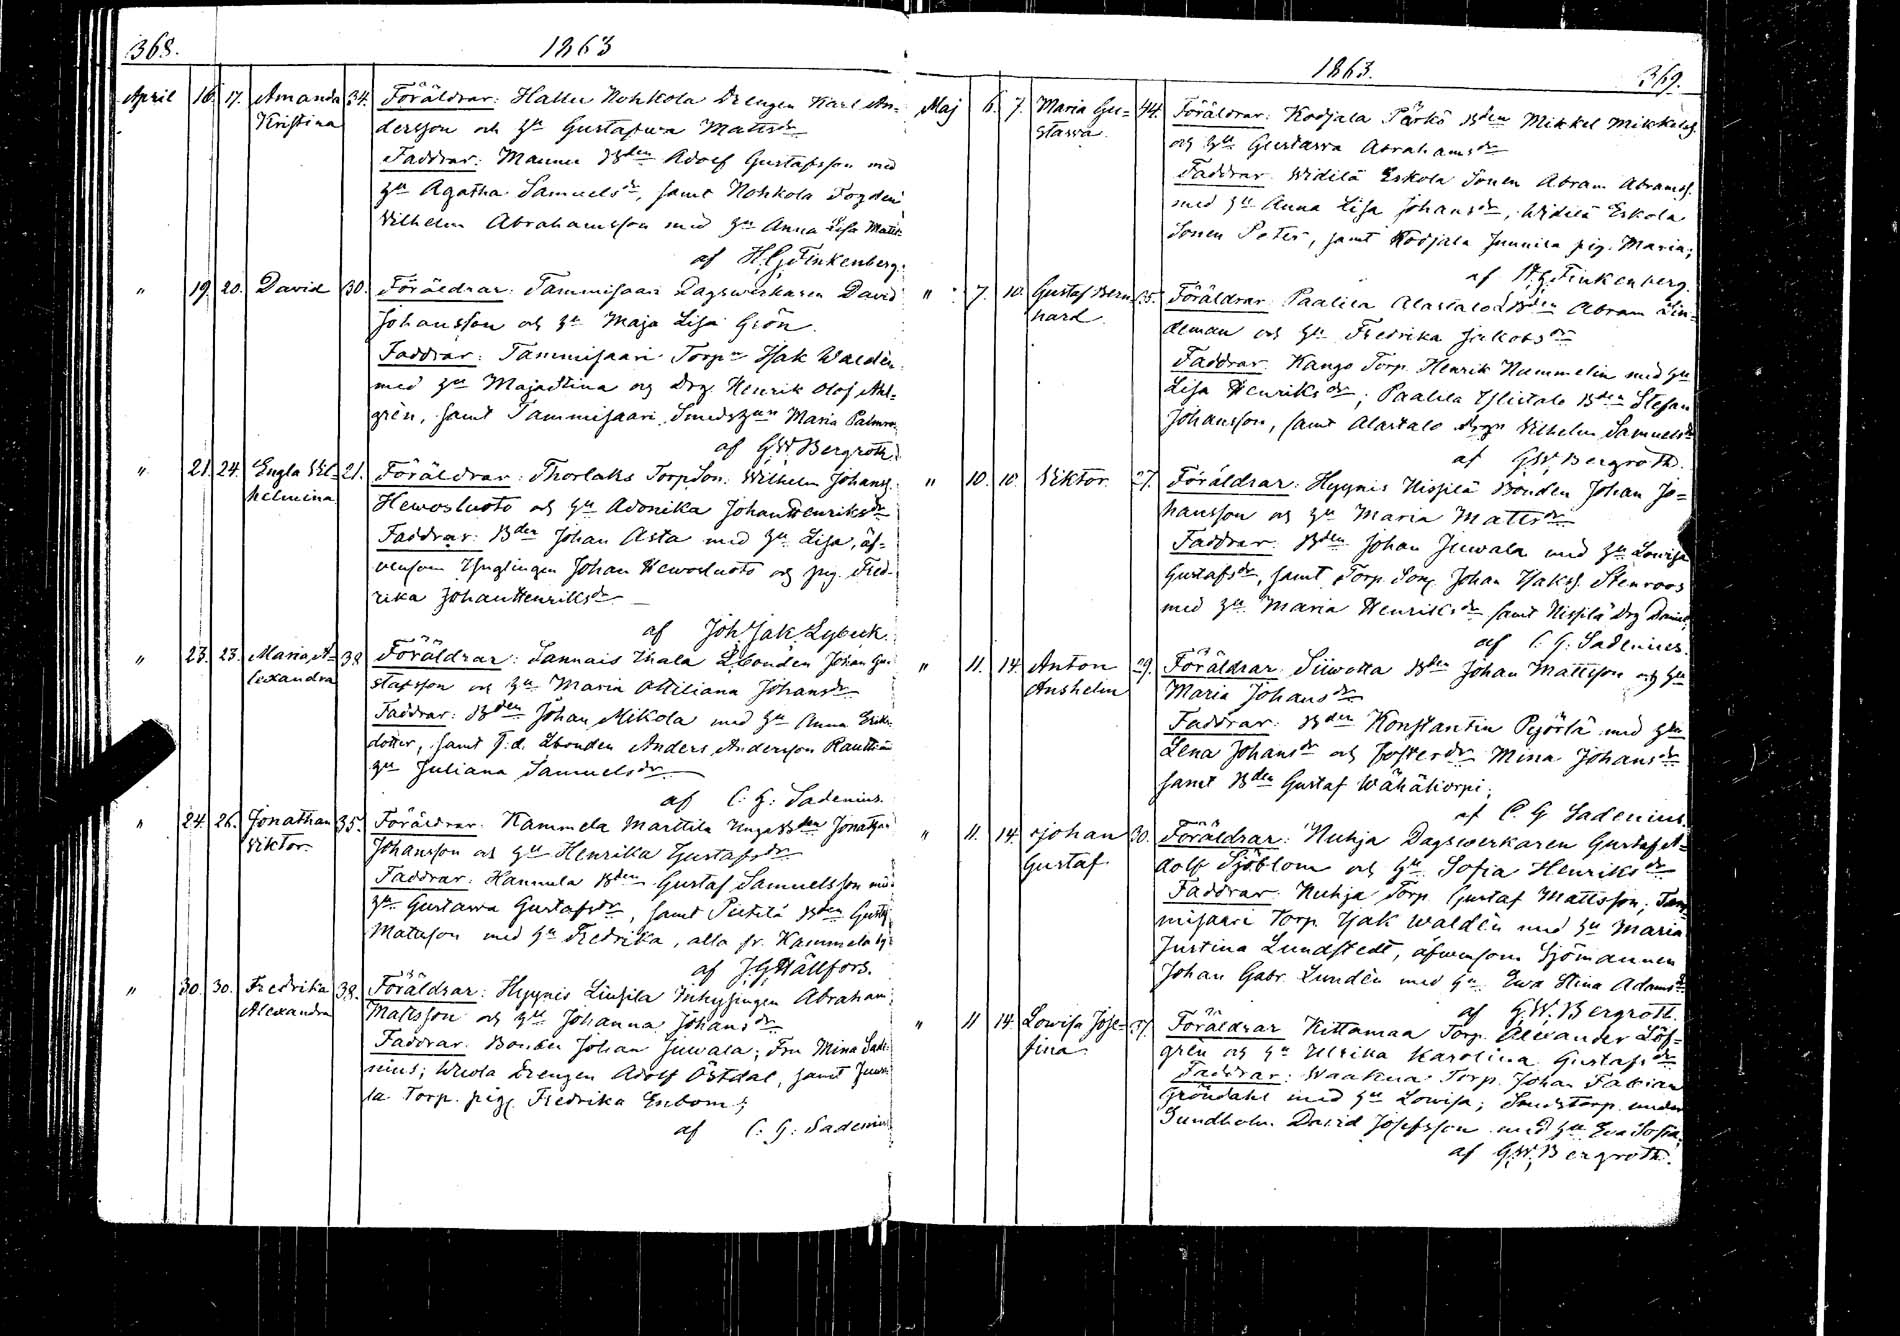 368.
1863
April 16. 17. Amanda 34. Föräldrar: Hallu Nohkola Drengen Karl An-
Kristina dersson och hu Gustafwa Mattsdr
Faddrar: Mannu Bden Adolf Gustafsson med
hu Agatha Samuelsdr, samt Nohkola Torparen
Wilhelm Abrahamsson med hu Anna Lisa Matts
af H.G. Finkenberg.
" 19. 20. David 30. Föräldrar: Tammisaari Dagswerkaren David
Johansson och hu Maja Lisa Grön.
Faddrar: Tammisaari Torpn Isak Waldén
med hu Majastina och Drg Henrik Olof Ahl-
grén, samt Tammisaari Smedshun Maria Palmro
af G.W. Bergroth.
" 21. 24. Engla Wil- 21. Föräldrar: Thorlaks TorpSon: Wilhelm Johanss.
helmina Hewosluoto och hu Adonika JohanHenriksdr
Faddrar: Bden Johan Asta med hu Lisa, äf-
wensom Ynglingen Johan Hewosluoto och pig. Fred-
rika JohanHenriksdr
af Joh. Isak Lybeck.
" 23. 23. Maria A- 38 Föräldrar: Sannais Ihala Lbonden Johan Gu-
lexandra stafsson och hu Maria Ottiliana Johansdr
Faddrar: Bden Johan Mikola med hu Anna Eriks
dotter, samt f.d. Lbonden Anders Andersson Rautti
hu Juliana Samuelsdr
af C. G. Sadenius.
" 24. 26. Jonathan 35. Föräldrar: Kammela Marttila Unga Bden Jonathan
Viktor. Johansson och hu Henrika Gustafsdr
Faddrar: Hannula Bden Gustaf Samuelsson me
hu Gustawa Gustafsdr, samt Pietilä Bden Gustaf
Matsson med hu Fredrika, alla fr. Kammela by
af J.G. Hällfors.
" 30. 30. Fredrika 38. Föräldrar: Hyynis Liusila Inhysingen Abraham
Alexandra Mattsson och hu Johanna Johansdr
Faddrar: Bonden Johan Juwala; Fru Mina Sade-
nius; Drengen Adolf Östdal, samt Juwa
la Torp. pig. Fredrika Enbom;
af C. G. Sadenius
1863.
369.
Maj 6. 7. Maria Gu- 44. Föräldrar: Kodjala Pärkö Bden Mikkel Mikkelss.
stawa. och hu Gustawa Abrahamsdr
Faddrar: Widilä Eskola Sonen Abram Abramss.
med hu Anna Lisa Johansdr, Widilä Eskola
Sonen Peter, samt Kodjala Junnila pig. Maria;
af H.G. Finkenberg.
" 7. 10. Gustaf Bern- 35. Föräldrar: Paalila Alastalo LBden Abram Lin-
hard. deman och hu Fredrika Jakobsdr
Faddrar: Kango Torp. Henrik Nummelin med hu
Lisa Henriksdr; Paalila Ylistalo Bden Stefan
Johansson, samt Alastalo drgn Wilhelm Samuels
af G.W. Bergroth.
" 10. 10. Viktor. 27. Föräldrar: Hyynis Nissilä Bonden Johan Jo-
hansson och hu Maria Mattsdr
Faddrar: Bden Johan Juwala med hu Lowisa
Gustafsdr, samt Torp. Son. Johan Isakss. Stenroos
med hu Maria Henriksdr samt Nissilä Drg Daniel,
af C. G. Sadenius.
" 11. 14. Anton 29. Föräldrar: Siiwokka Bden Johan Mattsson och hu
Anshelm Maria Johansdr
Faddrar: Bden Konstantin Pyörlä med hu
Lena Johansdr och Fosterdr Mina Johansdr
samt Bden Gustaf Wähäkorpi.
af C. G. Sadenius.
" 11. 14. Johan 30. Föräldrar: Nuhja Dagswerkaren Gustaf A-
Gustaf. dolf Sjöblom och hu Sofia Henriksdr
Faddrar: Nuhja Torp. Gustaf Mattsson; Tam-
misaari Torp. Isak Waldén med hu Maria
Justina Lundstedt, äfwensom Sjömannen
Johan Gabr. Lundén med hu Ewa Stina Adamsdr
af G.W. Bergroth.
" 11 14. Lowisa Jose- 37. Föräldrar Kittamaa Torp. Alexander Löf-
fina grén och hu Ulrika Karolina Gustafsdr
Faddrar: Waakua Torp. Johan Fabian
Gröndahl med hu Lowisa; Smedstorp. under
Sundholm David Josefsson med hu Ewa Sofia,
af G.W. Bergroth.